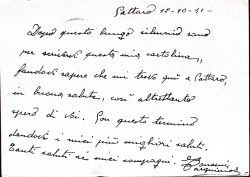 Pattard 12-10-41-
Dopo questo lungo silenzio sono
per scriverti questa mia cartolina,
fandovi sapere che mi trovo qui a Pattard,
in buona salute, così altrettanto
spero di voi. Con questo termino
dandovi i miei più migliori saluti.
Tanti saluti ai miei compagni.